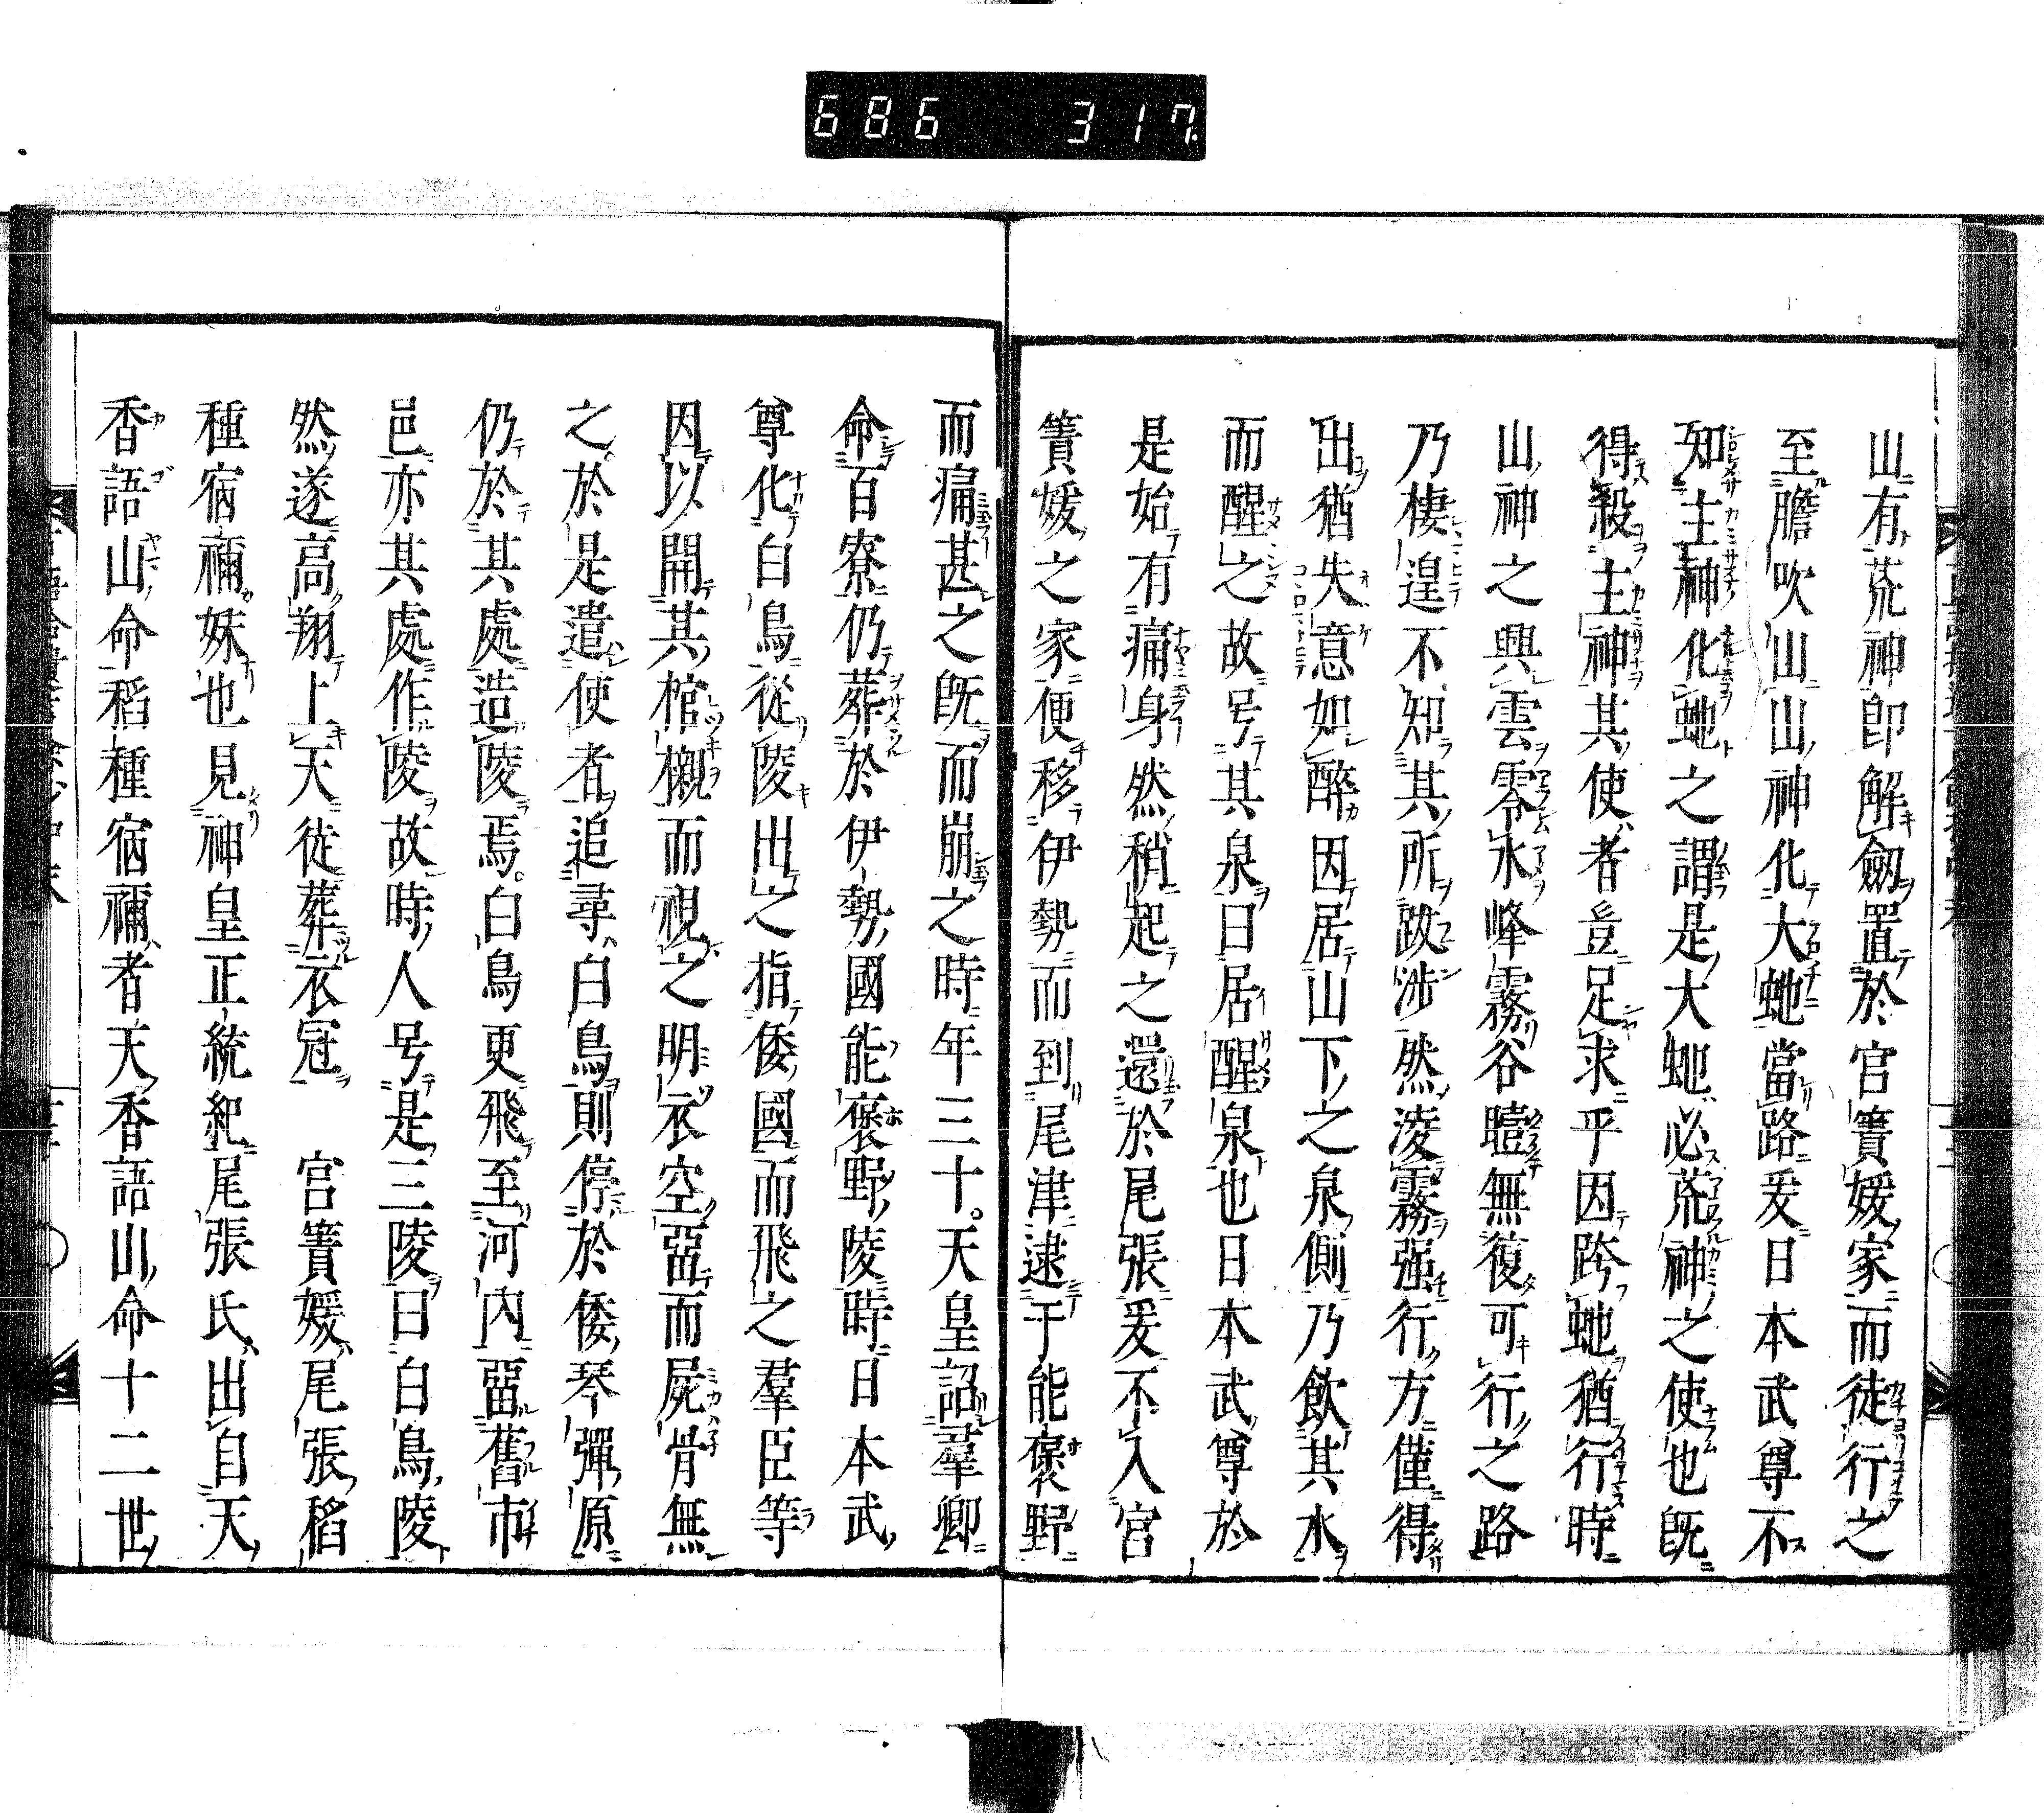 686 317
山有荒神即解劔置於宮簀媛家而徒行之
至膽吹山山神化大虵當路爰日本武尊不
知主神化虵之謂是大虵必荒神之使也既
得殺主神其使者豈足求乎因跨虵猶行時
山神之興雲零氷峰霧谷曀無復可行之路
乃棲遑不知其所跋渉然凌霧强行方僅得
出猶失意如醉因居山下之泉側乃飲其水
而醒之故号其泉曰居醒泉也日本武尊於
是始有痛身然稍起之還於尾張爰不入宮
簀媛之家便移伊勢而到尾津逮于能褒野
而痛甚之既而崩之時年三十天皇詔羣卿
命百寮仍葬於伊勢國能褒野陵時日本武
尊化白鳥從陵出之指倭國而飛之羣臣等
因以開其棺櫬而視之明衣空畱而屍骨無
之於是遣使者追尋白鳥則停於倭琴彈原
仍於其處造陵焉白鳥更飛至河內畱舊市
邑亦其處作陵故時人号是三陵曰白鳥陵
然遂高翔上天徒葬衣冠　宮簀媛尾張稻
種宿禰妹也見神皇正統紀尾張氏出自天
香語山命稻種宿禰者天香語山命十二世